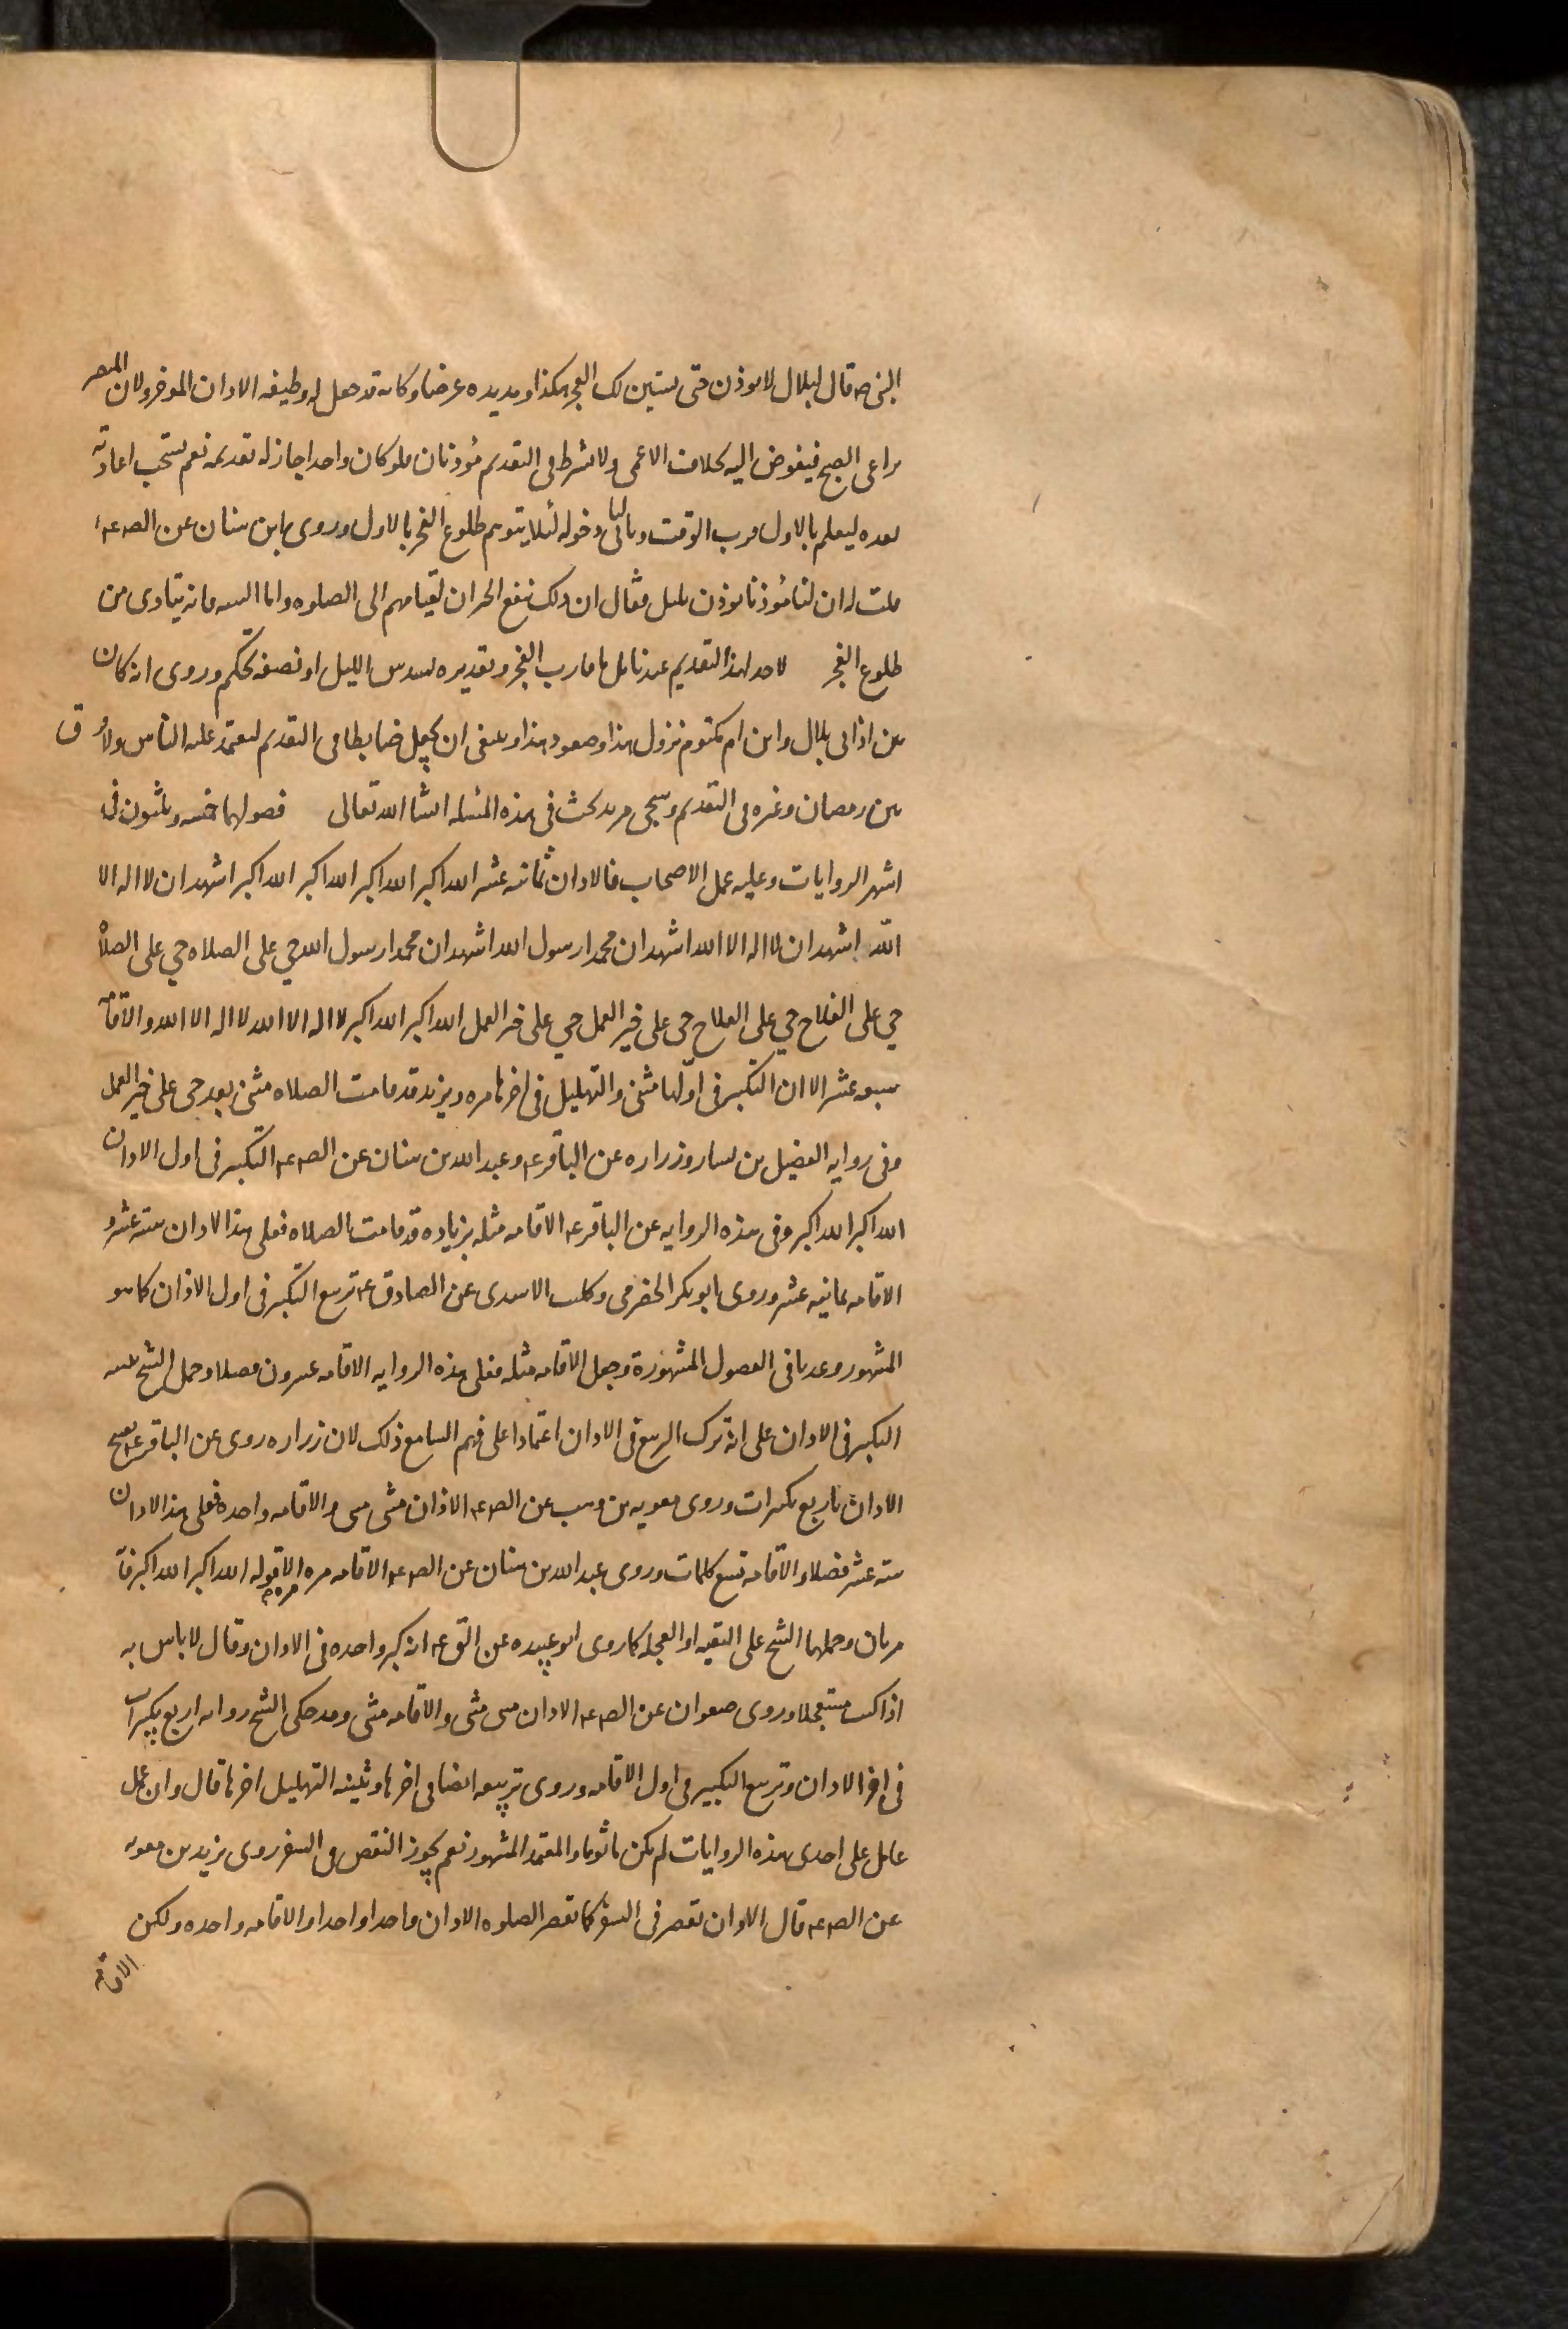 النبى ص قال لبلال لا توذن حتى يستبين لك الفجر هكذا ومد يده عرضا وكانه قد جعل له وظيفه الاذان الموخر ولان المبصر
يراعى الصبح فيفوض اليه بخلاف الاعمى ولا يشترط فى التقديم مؤذنان فلو كان واحدا جاز له تقديمه نعم يستحب اعادته
بعده ليعلم بالاول قرب الوقت وبالثانى دخوله لئلا يتوهم طلوع الفجر بالاول وروى ابن سنان عن الص ع
قلت له ان لنا مؤذنا يوذن بليل فقال ان ذلك ينفع الجيران لقيامهم الى الصلوه واما السنه فانه ينادى من
طلوع الفجر لا حد لهذا التقديم عندنا بل ما قارب الفجر وتقديره بسدس الليل او نصفه تحكم وروى انه كان
بين اذانى بلال وابن ام مكتوم نزول هذا وصعود هذا وينبغى ان يجعل ضابطا فى التقديم ليعتمد عليه الناس ولا فرق
بين رمضان وغيره فى التقديم وسيجى مزيد بحث فى هذه المسئله انشا الله تعالى فصولهما خمسه وثلثون فى
اشهر الروايات وعليه عمل الاصحاب فالاذان ثمانيه عشر الله اكبر الله اكبر الله اكبر الله اكبر اشهد ان لا اله الا
الله اشهد ان لا اله الا الله اشهد ان محمدا رسول الله اشهد ان محمدا رسول الله حي على الصلاه حي على الصلاه
حي على الفلاح حي على الفلاح حى على خير العمل حي على خير العمل الله اكبر الله اكبر لا اله الا الله لا اله الا الله والاقامه
سبعه عشر الا ان التكبير فى اولها مثنى والتهليل فى اخرها مره ويزيد قد قامت الصلاه مثنى بعد حى على خير العمل
وفى روايه الفضيل بن يسار وزراره عن الباقر ع وعبد الله بن سنان عن الص ع التكبير فى اول الاذان
الله اكبر الله اكبر وفى هذه الروايه عن الباقر ع الاقامه مثله بزياده قد قامت الصلاه فعلى هذا الاذان سته عشر و
الاقامه ثمانيه عشر وروى ابو بكر الحضرمى وكليب الاسدى عن الصادق ع تربيع التكبير فى اول الاذان كما هو
المشهور وعد باقى الفصول المشهورة وجعل الاقامه مثله فعلى هذه الروايه الاقامه عشرون فصلا وحمل الشيخ تثنيه
التكبير فى الاذان على انه ترك الربيع فى الاذان اعتمادا على فهم السامع ذلك لان زراره روى عن الباقر ع يفتتح
الاذان باربع تكبيرات وروى معويه بن وهب عن الص ع الاذان مثنى مثنى والاقامه واحده فعلى هذا الاذان
سته عشر فصلا والاقامه تسع كلمات وروى عبد الله بن سنان عن الص ع الاقامه مره مره الا قوله الله اكبر الله اكبر فانه
مرتان وحملهما الشيخ على التقيه او العجله كما روى ابو عبيده عن الق ع انه كبر واحده فى الاذان وقال لا باس به
اذا كنت مستعجلا وروى صفوان عن الص ع الاذان مثنى مثنى والاقامه مثنى وقد حكى الشيخ روايه اربع تكبيرات
فى اخر الاذان وتربيع التكبير فى اول الاقامه وروى تربيعه ايضا فى اخرها وتثنيه التهليل اخرها قال وان عمل
عامل على احدى هذه الروايات لم يكن ماثوما والمعتمد المشهور نعم يجوز النقص فى السفر روى بريد بن معويه
عن الص ع قال الاذان تقصر فى السفر كما تقصر الصلوه الاذان واحدا واحدا والاقامه واحده ولكن
الاقامه